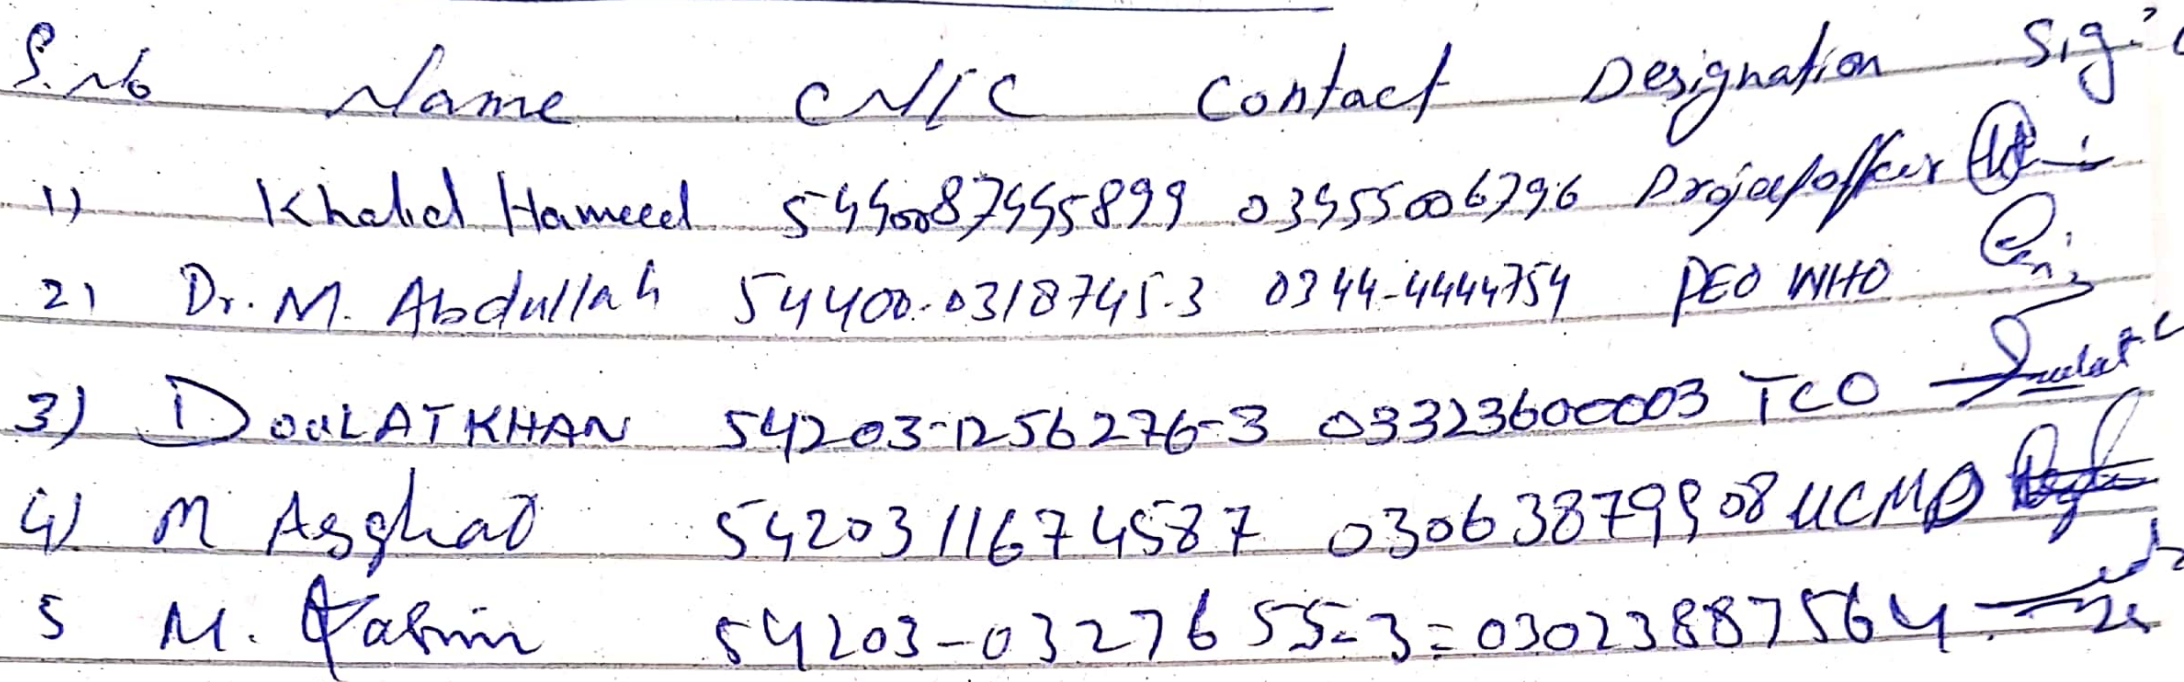 S.No Name CNIC Contact Designation Sig:
1) Khalid Hameed 5440087445899 03455006796 Project officer
2) Dr. M. Abdullah 54400-0318745-3 0344-4444754 PEO WHO
3) DOULAT KHAN 54203-1256276-3 03323600003 TCO
4) M Asghar 5420311674587 03063879908 UCMO
5 M. Qasim 54203-0327655-3= 03023887564